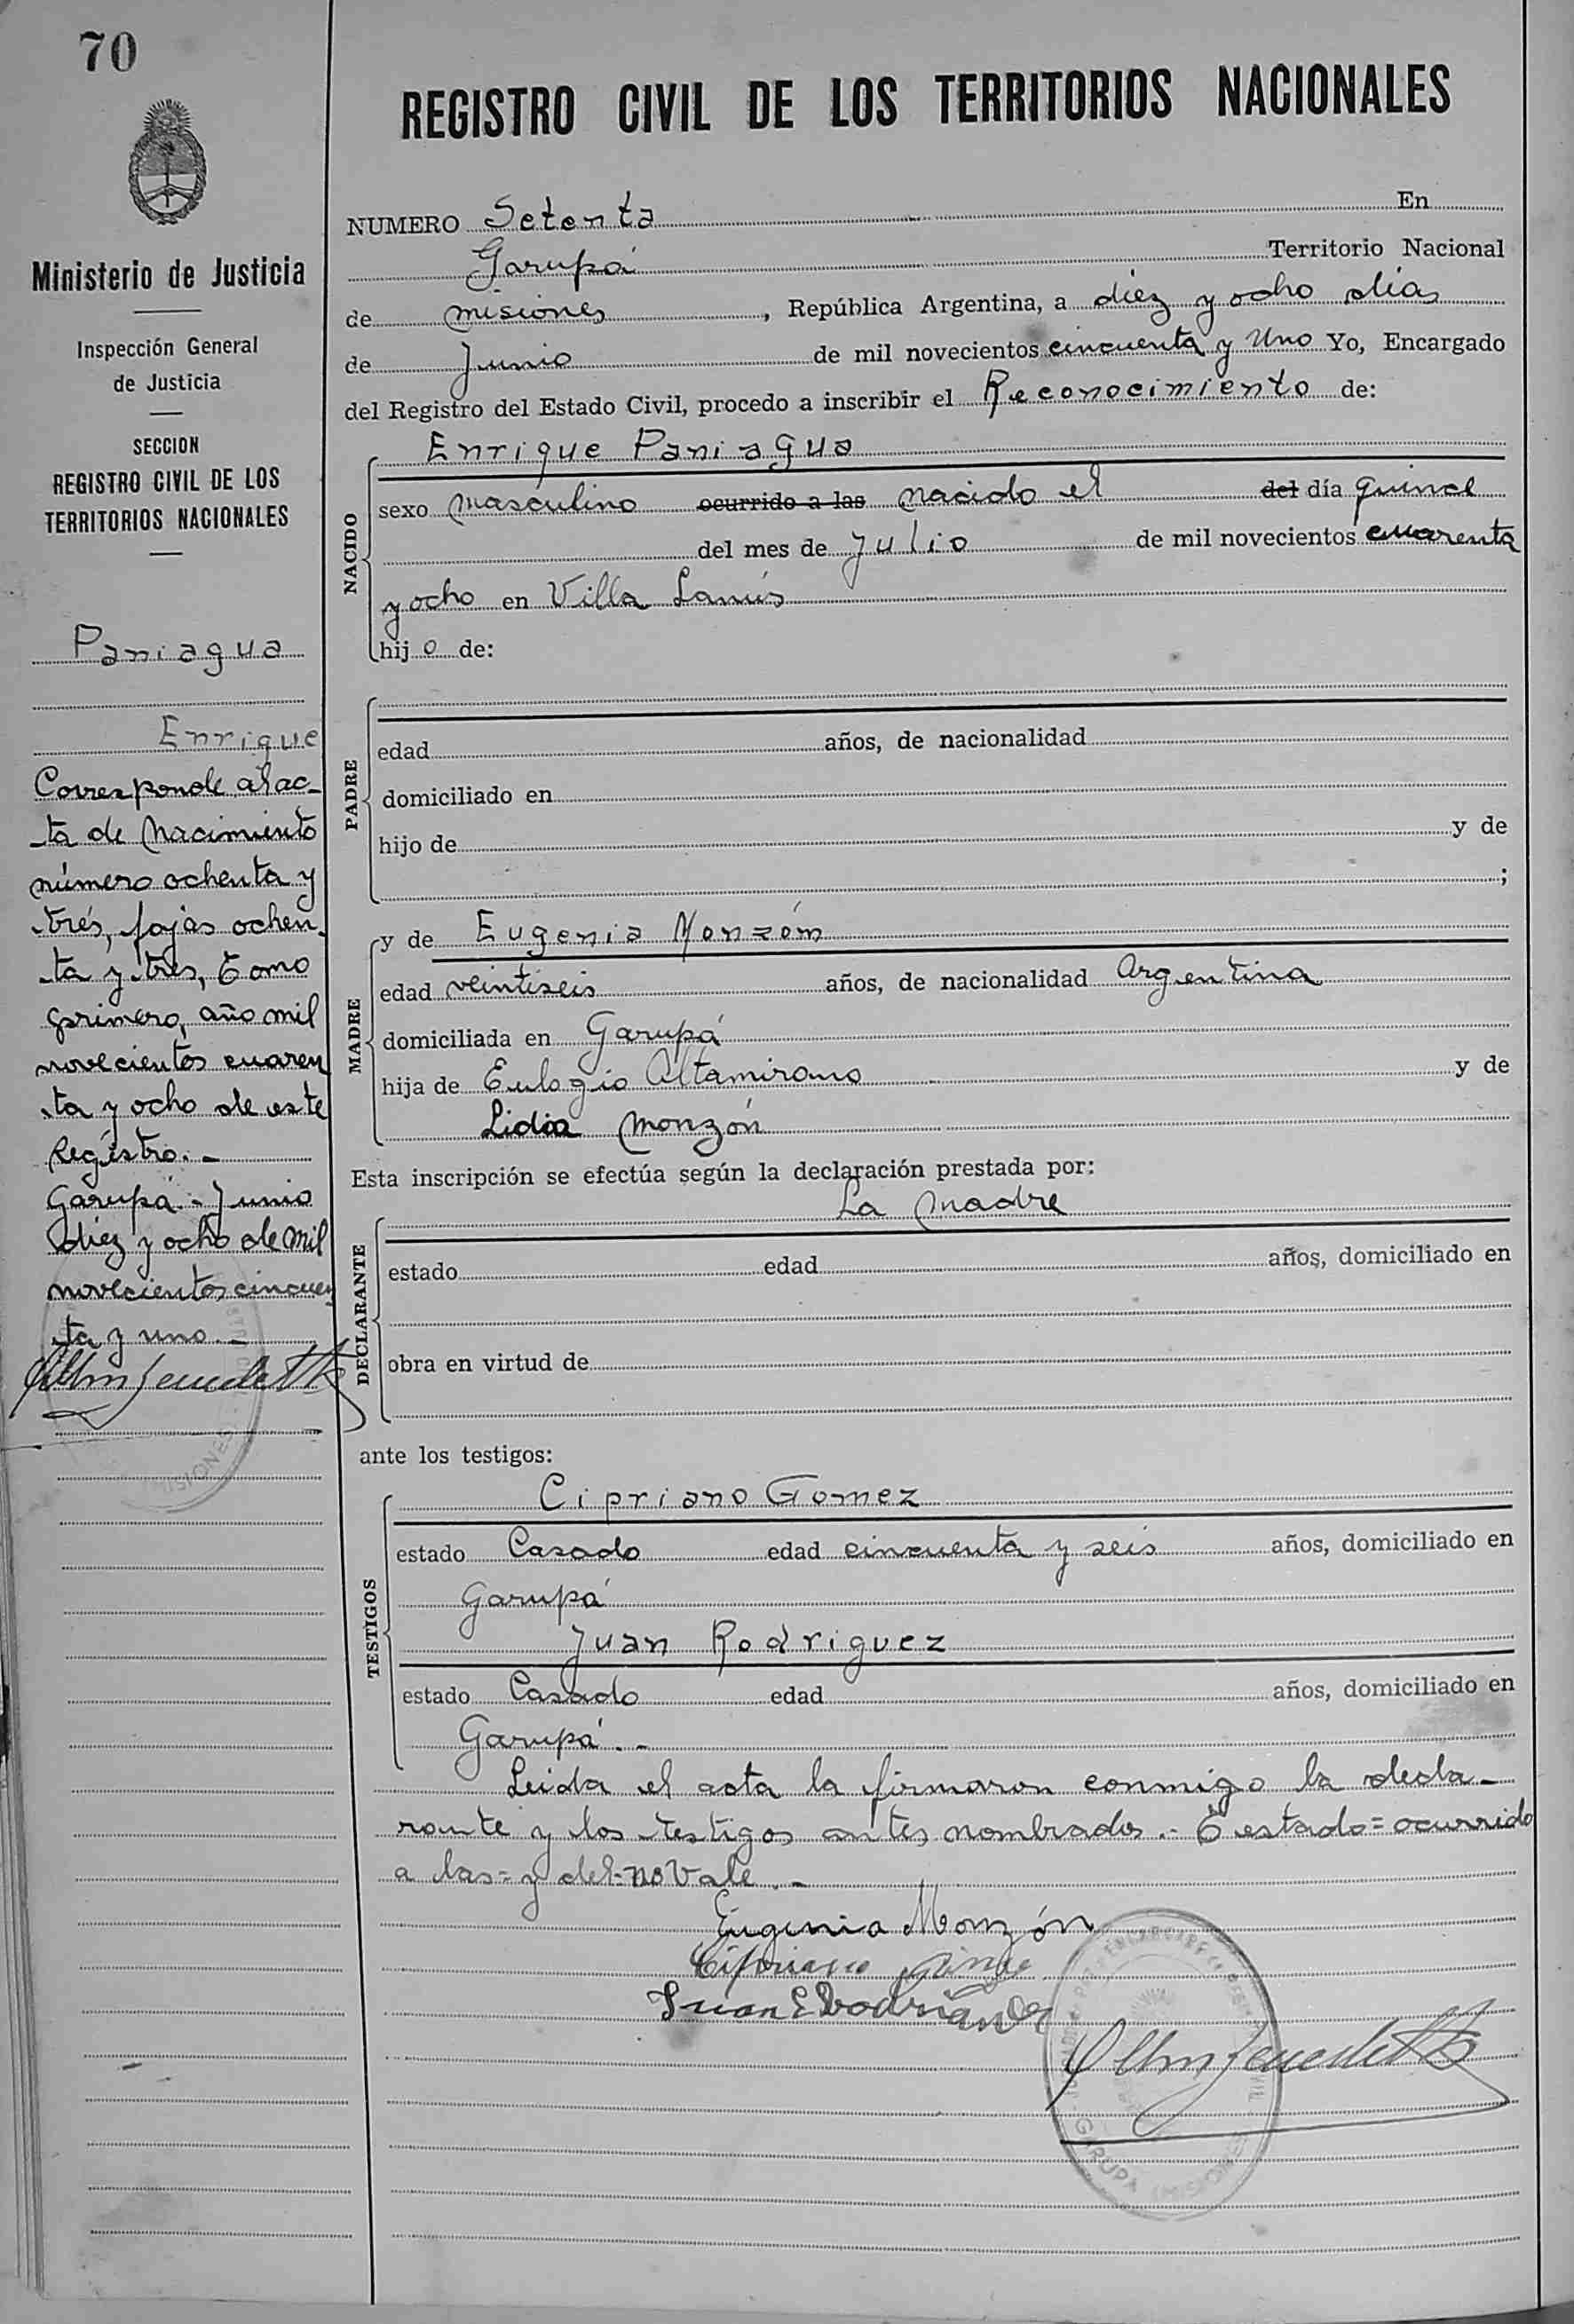 70
Ministerio de Justicia
Inspección General
de Justicia
SECCION
REGISTRO CIVIL DE LOS
TERRITORIOS NACIONALES
Paniagua
Enrique
Corresponde al ac-
ta de Nacimiento
número ochenta y
tres, fojas ochen-
ta y tres, Tomo
primero, año mil
novecientos cuaren
ta y ocho de este
Registro.-
Garupá.- Junio
diez y ocho de mil
novecientos cincuen
ta y uno.-
REGISTRO CIVIL DE LOS TERRITORIOS NACIONALES
NUMERO Setenta En
Garupá Territorio Nacional
de misiones, República Argentina, a diez y ocho días
de Junio de mil novecientos cincuenta y Uno Yo, Encargado
del Registro del Estado Civil, procedo a inscribir el Reconocimiento de:
NACIDO
Enrique Paniagua
sexo masculino ocurrido a las nacido el del día quince
del mes de Julio de mil novecientos cuarenta
y ocho en Villa Lanús
hijo de:
PADRE
edad años, de nacionalidad
domiciliado en
hijo de y de
;
MADRE
y de Eugenia Monzóm
edad veintiseis años, de nacionalidad Argentina
domiciliada en Garupá
hija de Eulogio Altamirano y de
Lidia Monzón
Esta inscripción se efectúa según la declaración prestada por:
DECLARANTE
La madre
estado edad años, domiciliado en
obra en virtud de
ante los testigos:
TESTIGOS
Cipriano Gomez
estado Casado edad cincuenta y seis años, domiciliado en
Garupá
Juan Rodriguez
estado Casado edad años, domiciliado en
Garupá.-
Leida el acta la firmaron conmigo la decla-
rante y los testigos antes nombrados.- Testado=ocurrido
a las= y del=no Vale.-
Eugenia Monzón
Cipriano
Juan E Rodriguez
GARUPA (MISIONES)